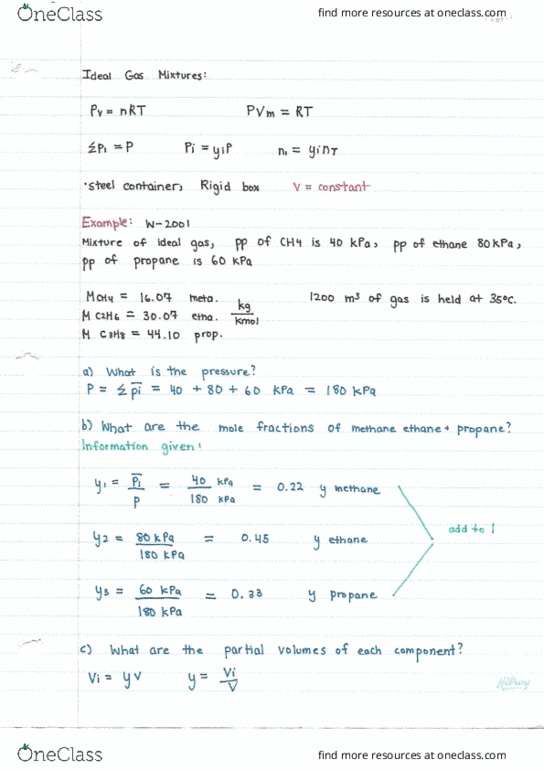 OneClass
find more resources at oneclass.com
Ideal Gas Mixtures:
Pv = nRT PVm = RT
ΣPi = P Pi = yiP ni = yinT
·steel container, Rigid box V = constant
Example: W-2001
Mixture of ideal gas, pp of CH4 is 40 kPa, pp of ethane 80 kPa,
pp of propane is 60 kPa
MCH4 = 16.07 meta. kg/kmol 1200 m³ of gas is held at 35°C.
M C2H6 = 30.07 etha.
M C3H8 = 44.10 prop.
a) What is the pressure?
P = Σ p̄i = 40 + 80 + 60 kPa = 180 kPa
b) What are the mole fractions of methane ethane + propane?
Information given:
y1 = P̄i/P = 40 kPa/180 kPa = 0.22 y methane
add to 1
y2 = 80 kPa/180 kPa = 0.45 y ethane
y3 = 60 kPa/180 kPa = 0.33 y propane
c) What are the partial volumes of each component?
Vi = yV y = Vi/V
Hilroy
OneClass
find more resources at oneclass.com